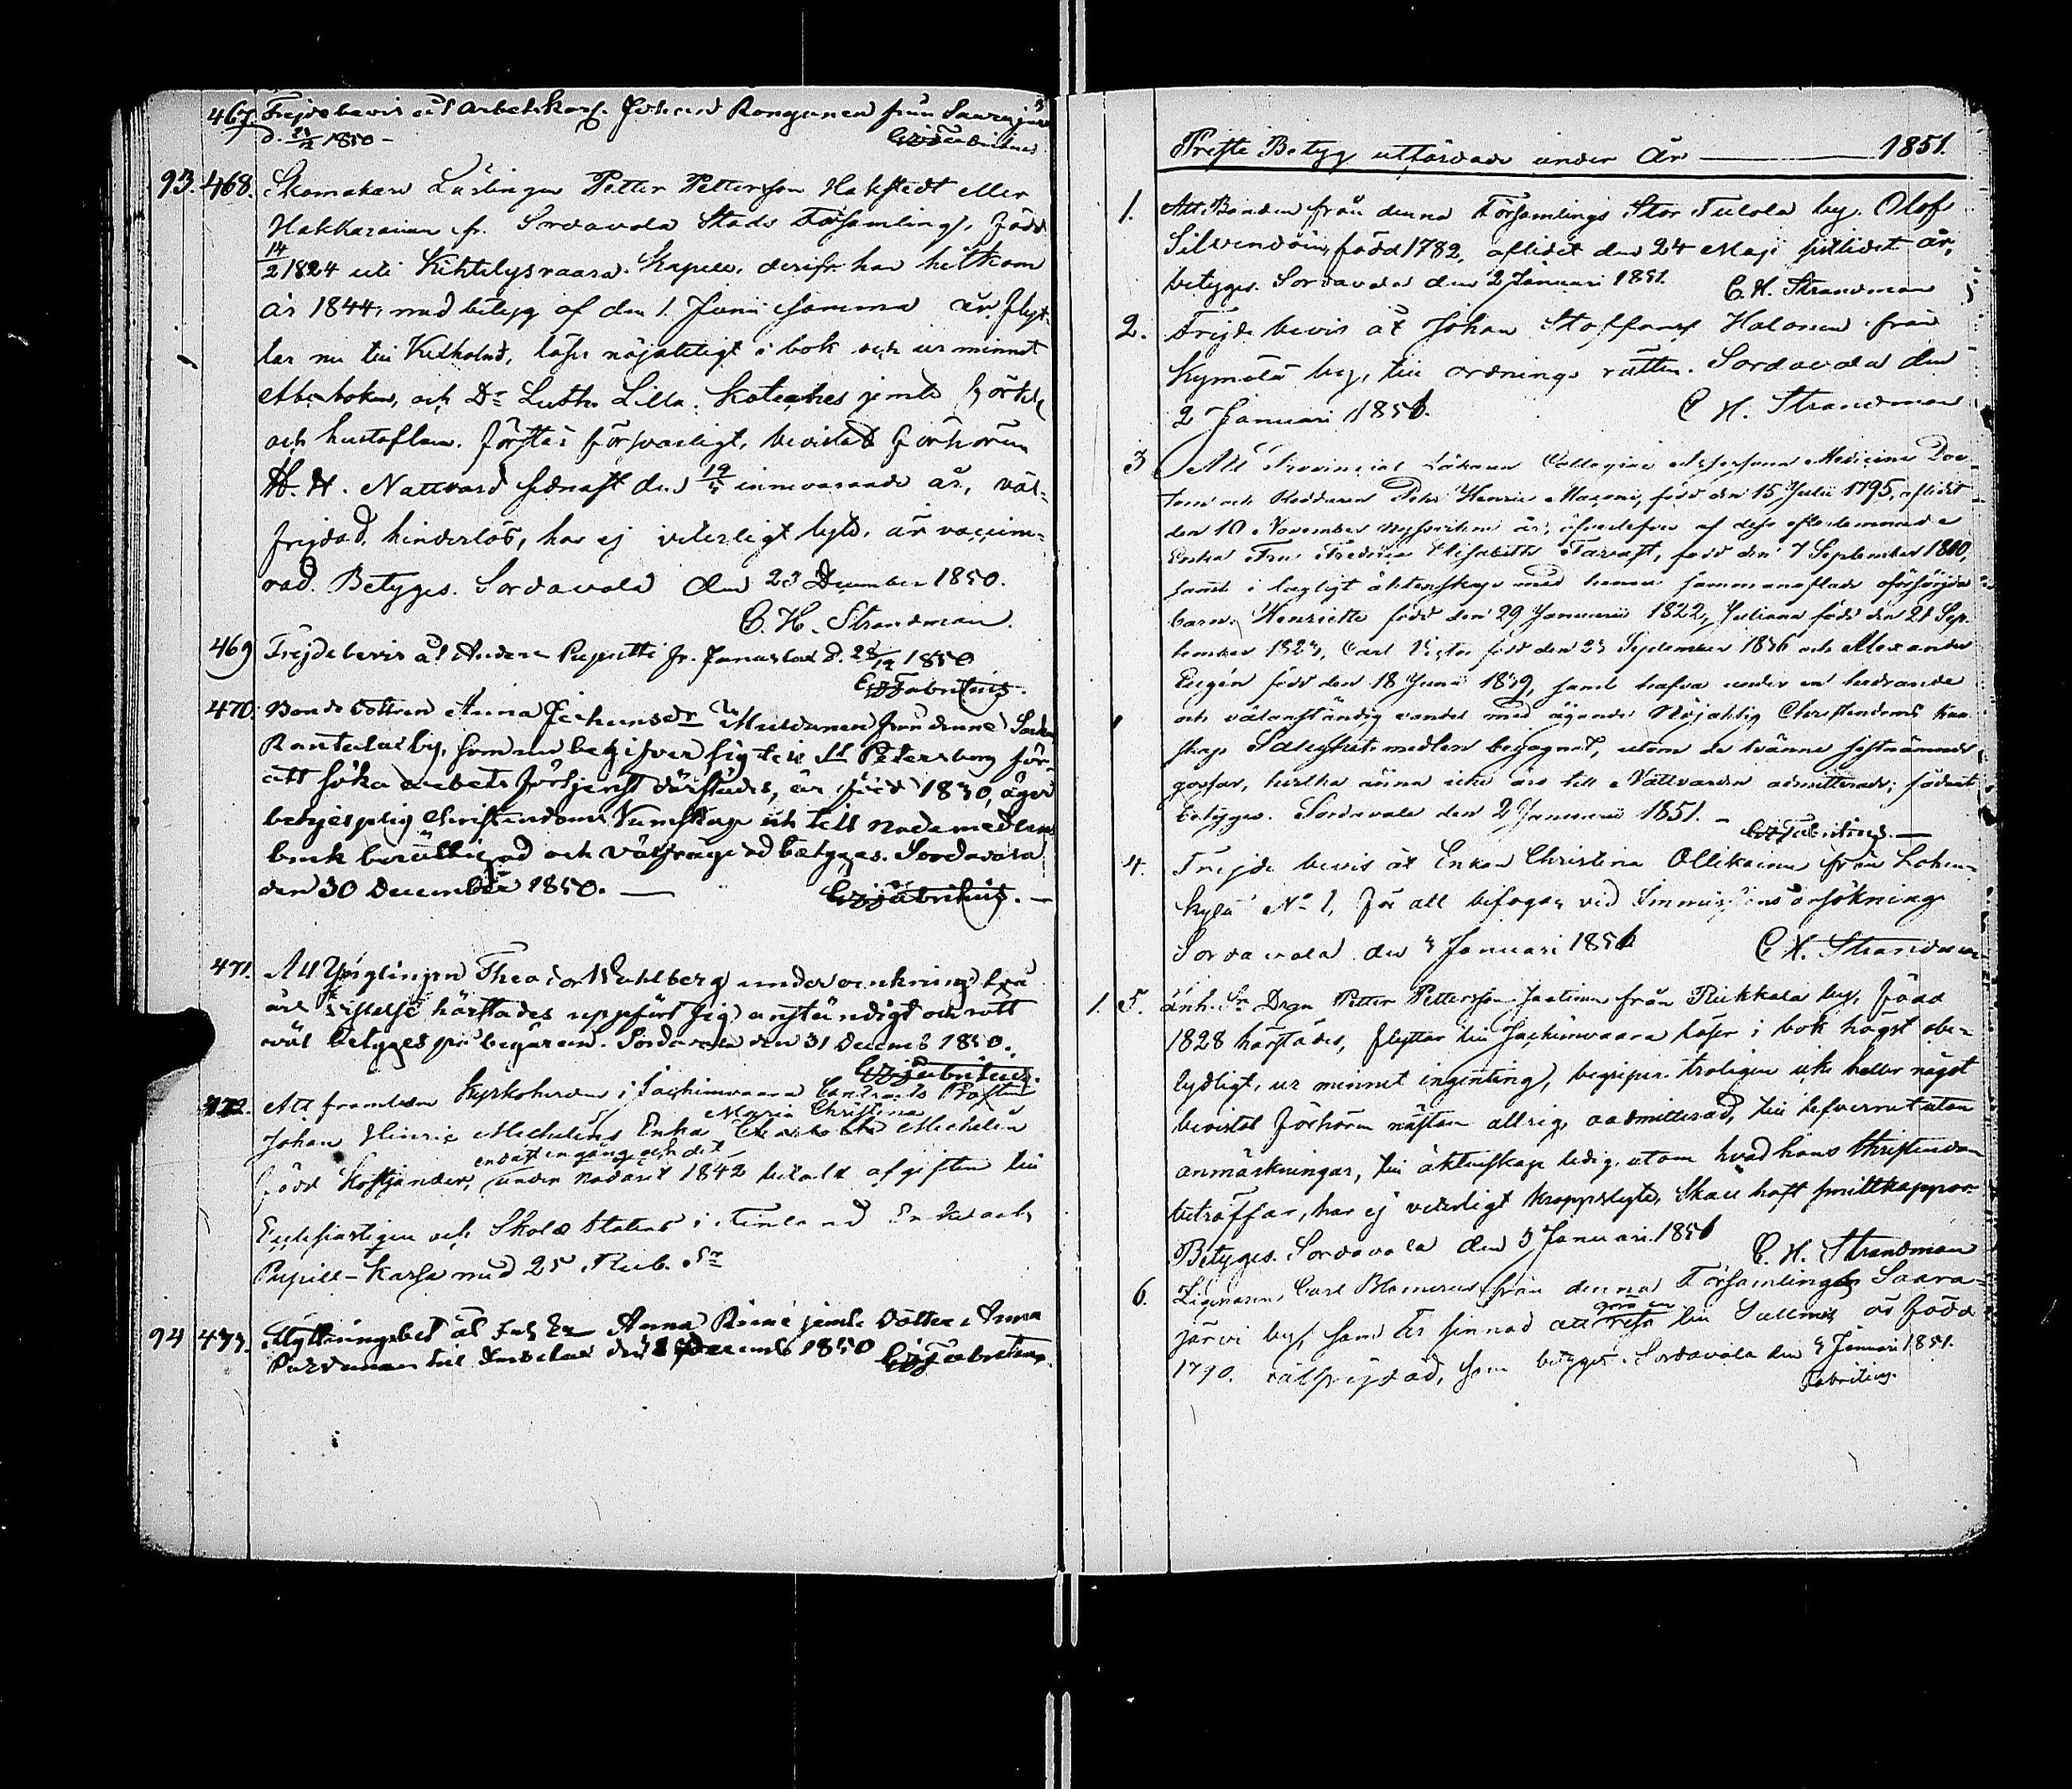 467. Frejdebevis åt Arbetskarl. Johan Ronganen från Saarijärvi
d. 21/12 1850 - Fabritius
93. 468. Skomakare Lärlingen Petter Pettersson Hakstedt eller
Hakkarainen fr. Sordavala Stads Församling, född
14/2 1824 uti Kihtelysvaara Kapell, derifr. han hitkom
år 1844, med betyg af den 1 Junii samma år, flyt-
tar nu till Kexholm, läser nöjaktigt i bok och ur minnet
Abcboken, och Dr Luth. Lilla Kateches jemte Spörsm.
och hustaflan. förstår försvarligt, bevistat Förhören
H. H. Nattvard sednast den innevarande år, väl-
frejdad, hinderlös, har ej veterligt lyte, är vaccine-
rad. Betygas. Sordavala den 23 December 1850.
C. H. Strandman.
469 Frejdebevis åt Anders Puputti fr. d. 28/12 1850
Fabritius.
470. Bonde Dottren Anna Johansdr Muldunen från denna Socken
Rantelax by, som nu begifver sig till St Petersburg för
att söka arbets förtjenst därstädes, är född 1830, äger
behjelplig Christendoms Kunskap och till Nademedlens
bruk berättigad och Välfräigdad betygas. Sordavala
den 30 December 1850. — Fabritius. —
471. Att Ynglingen Theodor Wahlberg under omkring två
års vistelse härstädes uppfört sig anständigt och rätt
wäl betygas på begäran. Sordavala den 31 Decemb 1850.
Fabritius.
472. Att framledne Kyrkoherden i Jachimvaara Contracts Prosten
Maria Christina
Johan Henric Mechelins Enka Mechelin
endast en gång och det
född Costiander, under Nadåret 1842 betalt afgiften till
Ecclesiastique och Skole Statens i Finland Enke och
Pupill-Kassa med 25 Rub. Sr
94 473. Flyttningsbet åt Anna jemte Dotter Anna
till den Decemb 1850 Fabritius.
Preste Betyg utfärdade under År — 1851.
1. Att Bonden från denna Församlings Stor Tulola by. Olof
Silvendoin, född 1782, aflidit den 24 Maji sistlidet år,
betygas. Sordavala den 2 Januari 1851. C. H. Strandman
2. Frejde bevis åt Johan Staffans Halonen från
Kymölä by, till ordnings rätten. Sordavala den
2 Januari 1851. C H. Strandman
3 Att Provincial Läkaren Collegiae Assessoren Medicine Doc-
torn och Riddaren Pehr Henric Maconi, född den 15 Julii 1795, aflidit
den 10 November nyssvikne år, öfverlefves af dess efterlemnade
Enka Fru Fredrica Elisabeth Tavast, född den 7 September 1800,
samt i lagligt äktenskap med henne sammanaflade oförsörjda
barn: Henriette född den 29 Januarii 1822, Juliana född den 21 Sep-
tember 1823, Carl Victor född den 23 September 1836 och Alexander
Eugén född den 18 Junii 1839, samt hafva under en hedrande
och välanständig vandel med ägande Nöjaktig Christendoms Kun-
skap Salighets medlen begagnat, utom de tvänne sistnämnde
gossar, hvilka ännu icke äro till Nattvarden admitterade; sådant
betygas. Sordavala den 2 Januarii 1851. — Fabritius. —
4. Frejde bevis åt Enkan Christina Ollikainen från Lohen-
kylä No 1, för att bifogas vid ansökning
Sordavala den 3 Januari 1851 C H. Strandman
1. 5. Inh. Sn Drgn Petter Pettersson Jaatinen från Riekkala by, född
1828 härstädes, flyttar till Jachimvaara läser i bok högst obe-
tydligt, ur minnet ingenting, begriper troligen icke heller något
bevistat Förhören nästan alldrig, oadmitterad, till lefvernet utan
anmärkningar, till äktenskap ledig, utom hvad hans Christendom
beträffar, har ej veterligt kroppslyte. Skall haft smittkoppor.
Betygas. Sordavala den 3 Januari 1851 C. H. Strandman
6. Zigenaren Carl Blomerus från denna Församlings Saara-
göra en
järvi by, som är sinnad att resa till Sulkova, är född
1790. välfrejdad, som betygas. Sordavala den 4 Januari 1851.
Fabritius.